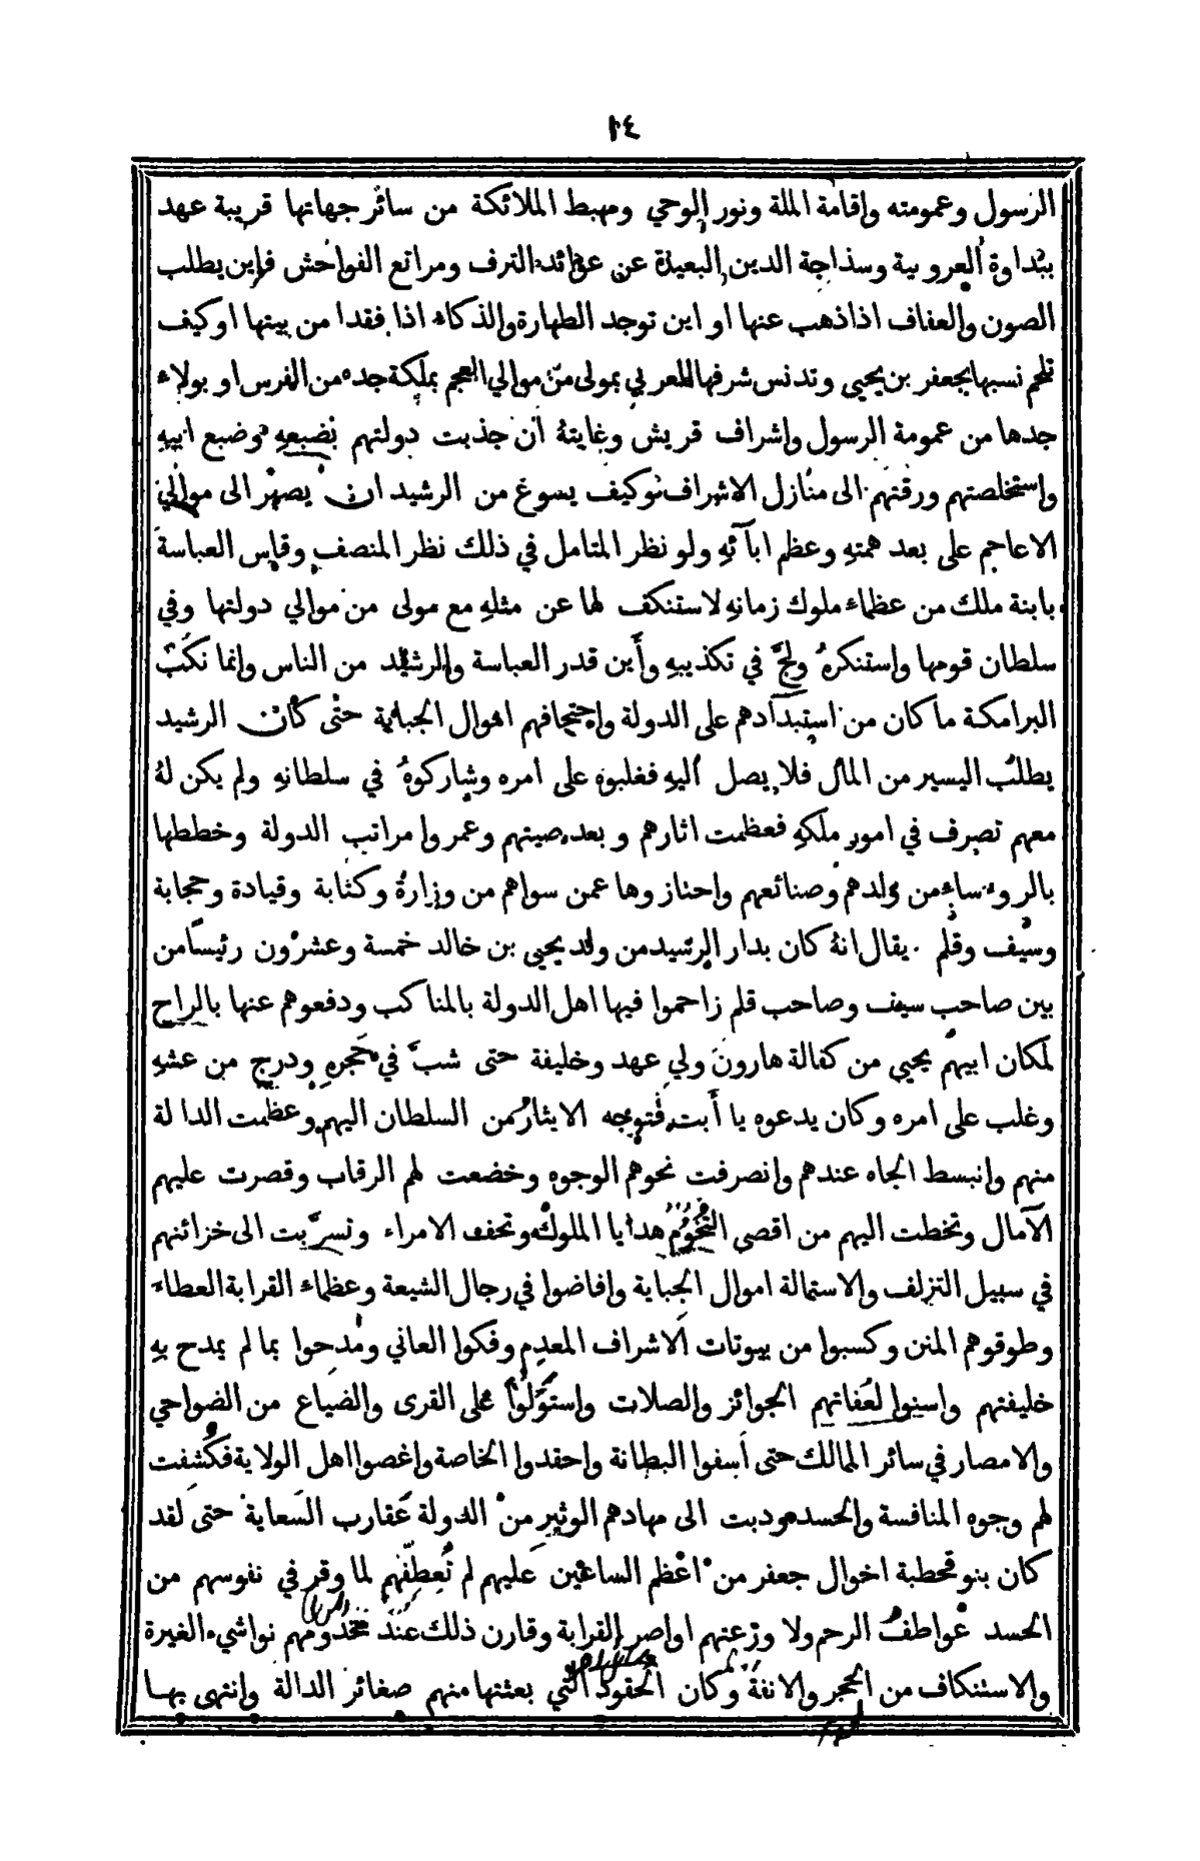 ١٤
الرسول وعمومته وإقامة الملة ونور الوحي ومهبط الملائكة من سائر جهاتها قريبة عهد
ببداوة العروبية وسذاجة الدين البعيدة عن عوائد الترف ومراتع الفواحش فاين يطلب
الصون والعفاف اذا ذهب عنها او اين توجد الطهارة والذكاء اذا فقدا من بيتها اوكيف
تلحم نسبها بجعفر بن يحيى وتدنس شرفها العربي بمولى من موالي العجم بملكة جده من الفرس او بولاء
جدها من عمومة الرسول وإشراف قريش وغايتهُ أن جذبت دولتهم بضبعهِ وضبع ابيهِ
وإستخلصتهم ورقتهم الى منازل الاشراف وكيف يسوغ من الرشيد ان يصهر الى موالي
الاعاجم على بعد همتهِ وعظم ابآئهِ ولو نظر المتامل في ذلك نظر المنصف وقاس العباسة
بابنة ملك من عظماء ملوك زمانهِ لاستنكف لها عن مثلهِ مع مولى من موالي دولتها وفي
سلطان قومها وإستنكرهُ ولجَّ في تكذيبهِ وأين قدر العباسة والرشيد من الناس وإنما نكب
البرامكة ما كان من استبدادهم على الدولة وإحتجافهم اموال الجباية حتى كان الرشيد
يطلب اليسير من المال فلا يصل اليهِ فغلبوه على امره وشاركوهُ في سلطانهِ ولم يكن لهُ
معهم تصرف في امور ملكهِ فعظمت اثارهم وبعد صيتهم وعمروا مراتب الدولة وخططها
بالروءساء من ولدهم وصنائعهم واحتازوها عمن سواهم من وزارة وكتابة وقيادة وحجابة
وسيف وقلم . يقال انهُ كان بدار الرشيد من ولد يحيى بن خالد خمسة وعشرون رئيساً من
بين صاحب سيف وصاحب قلم زاحموا فيها اهل الدولة بالمناكب ودفعوهم عنها بالراح
لمكان ابيهم يحيى من كفالة هارون ولي عهد وخليفة حتى شبَّ في حجره ودرج من عشهِ
وغلب على امره وكان يدعوه يا أبت فتوجه الايثار من السلطان اليهم وعظمت الدالة
منهم وإنبسط الجاه عندهم وإنصرفت نحوهم الوجوه وخضعت لهم الرقاب وقصرت عليهم
الآمال وتخطت اليهم من اقصى التخوم هدايا الملوك وتحف الامراء وتسرَّبت الى خزائنهم
في سبيل التزلف والاستمالة اموال الجباية وإفاضوا في رجال الشيعة وعظماء القرابة العطاء
وطوقوهم المنن وكسبوا من بيوتات الاشراف المعدم وفكوا العاني ومدحوا بما لم يمدح بهِ
خليفتهم واسنوا لعفاتهم الجوائز والصلات وإستولوا على القرى والضياع من الضواحي
والامصار في سائر الممالك حتى أسفوا البطانة وإحقدوا الخاصة وإغصوا اهل الولاية فكشفت
لهم وجوه المنافسة والحسد ودبت الى مهادهم الوثير من الدولة عقارب السعاية حتى لقد
كان بنو قحطبة اخوال جعفر من اعظم الساعين عليهم لم تُعطفهم لما وقر في نفوسهم من
الحسد عواطف الرحم ولا وزعتهم اواصر القرابة وقارن ذلك عند مخدومهم نواشيء الغيرة
والاستنكاف من الحجر والانفة وكان الحقود التي بعثتها منهم صغائر الدالة وإنتهى بها